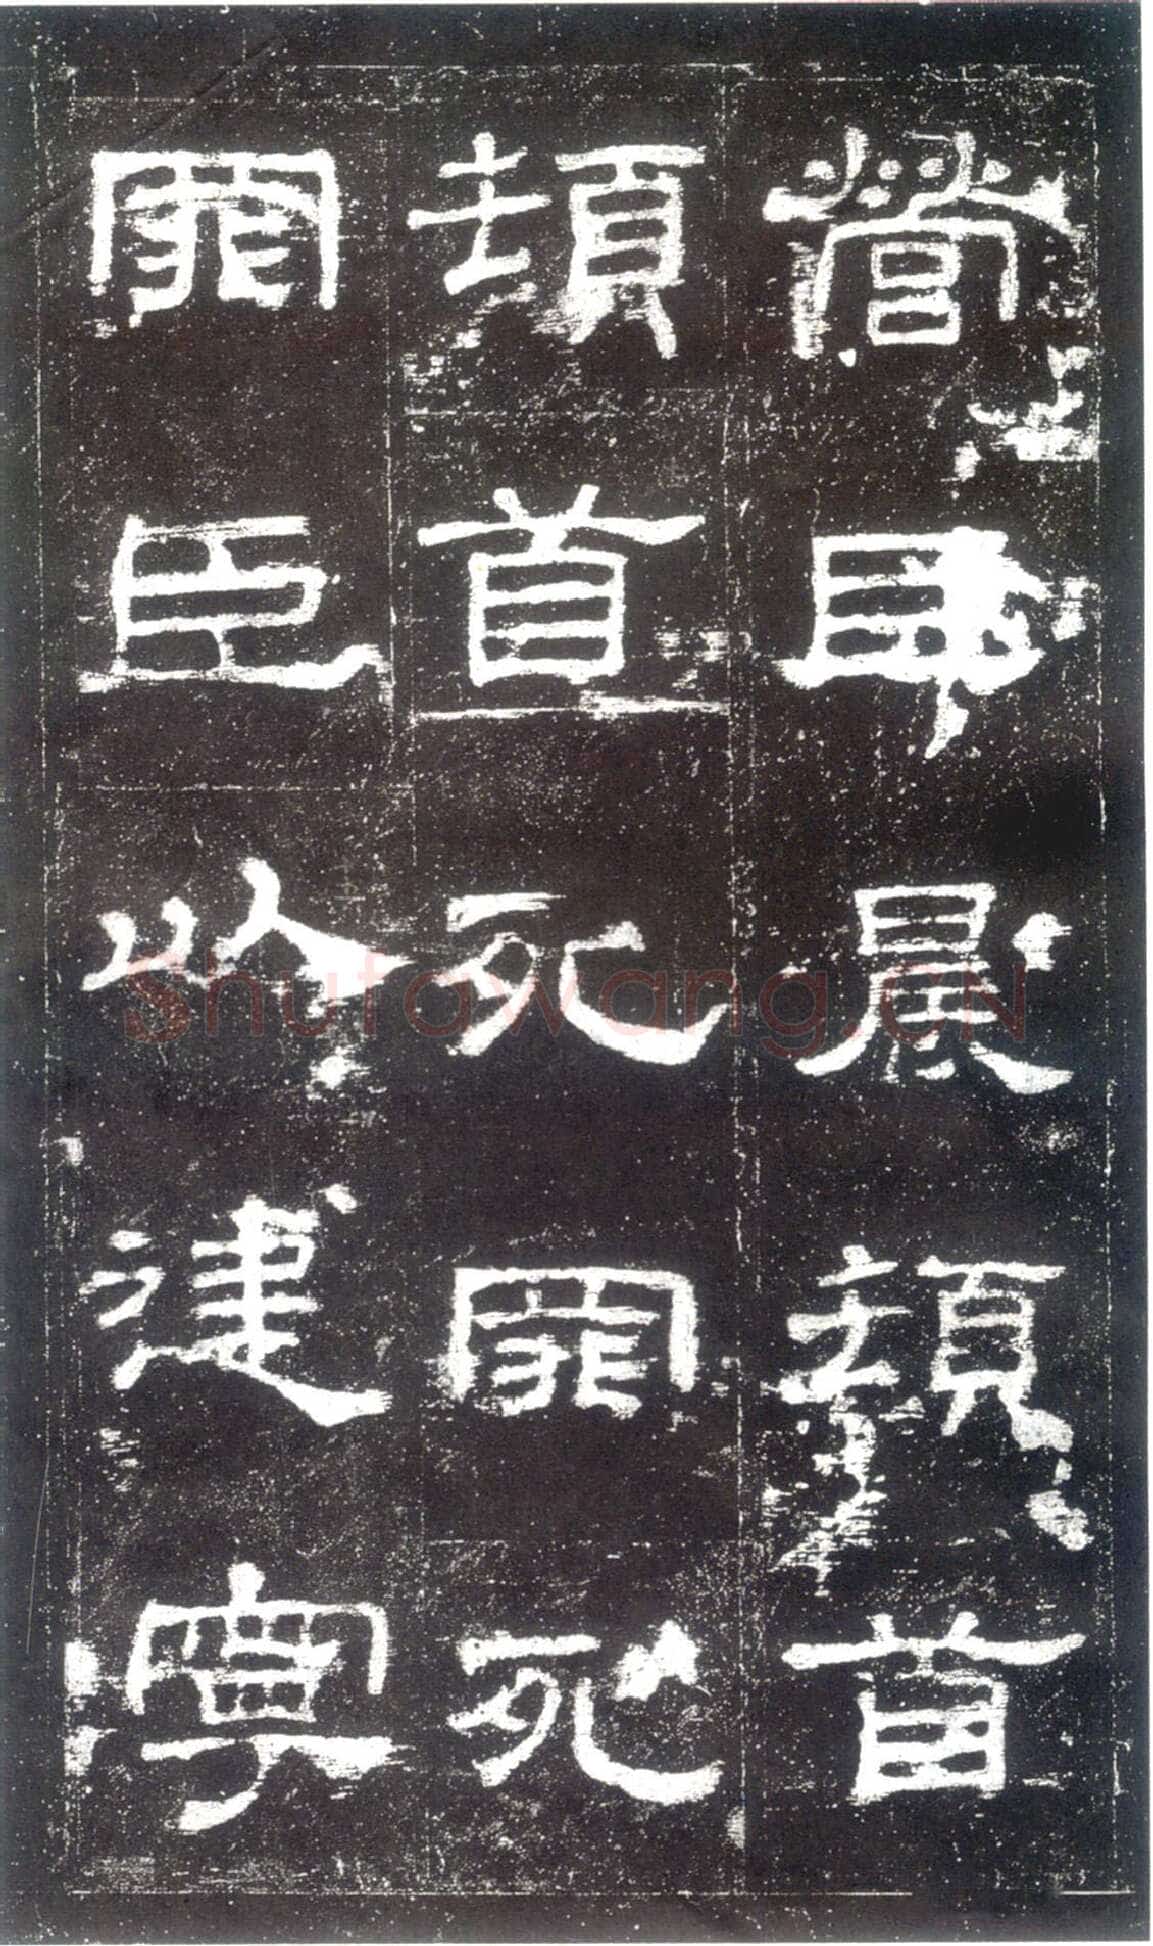 營臣晨頓首
頓首死罪死
罪臣以建寧
Shufawang.CN